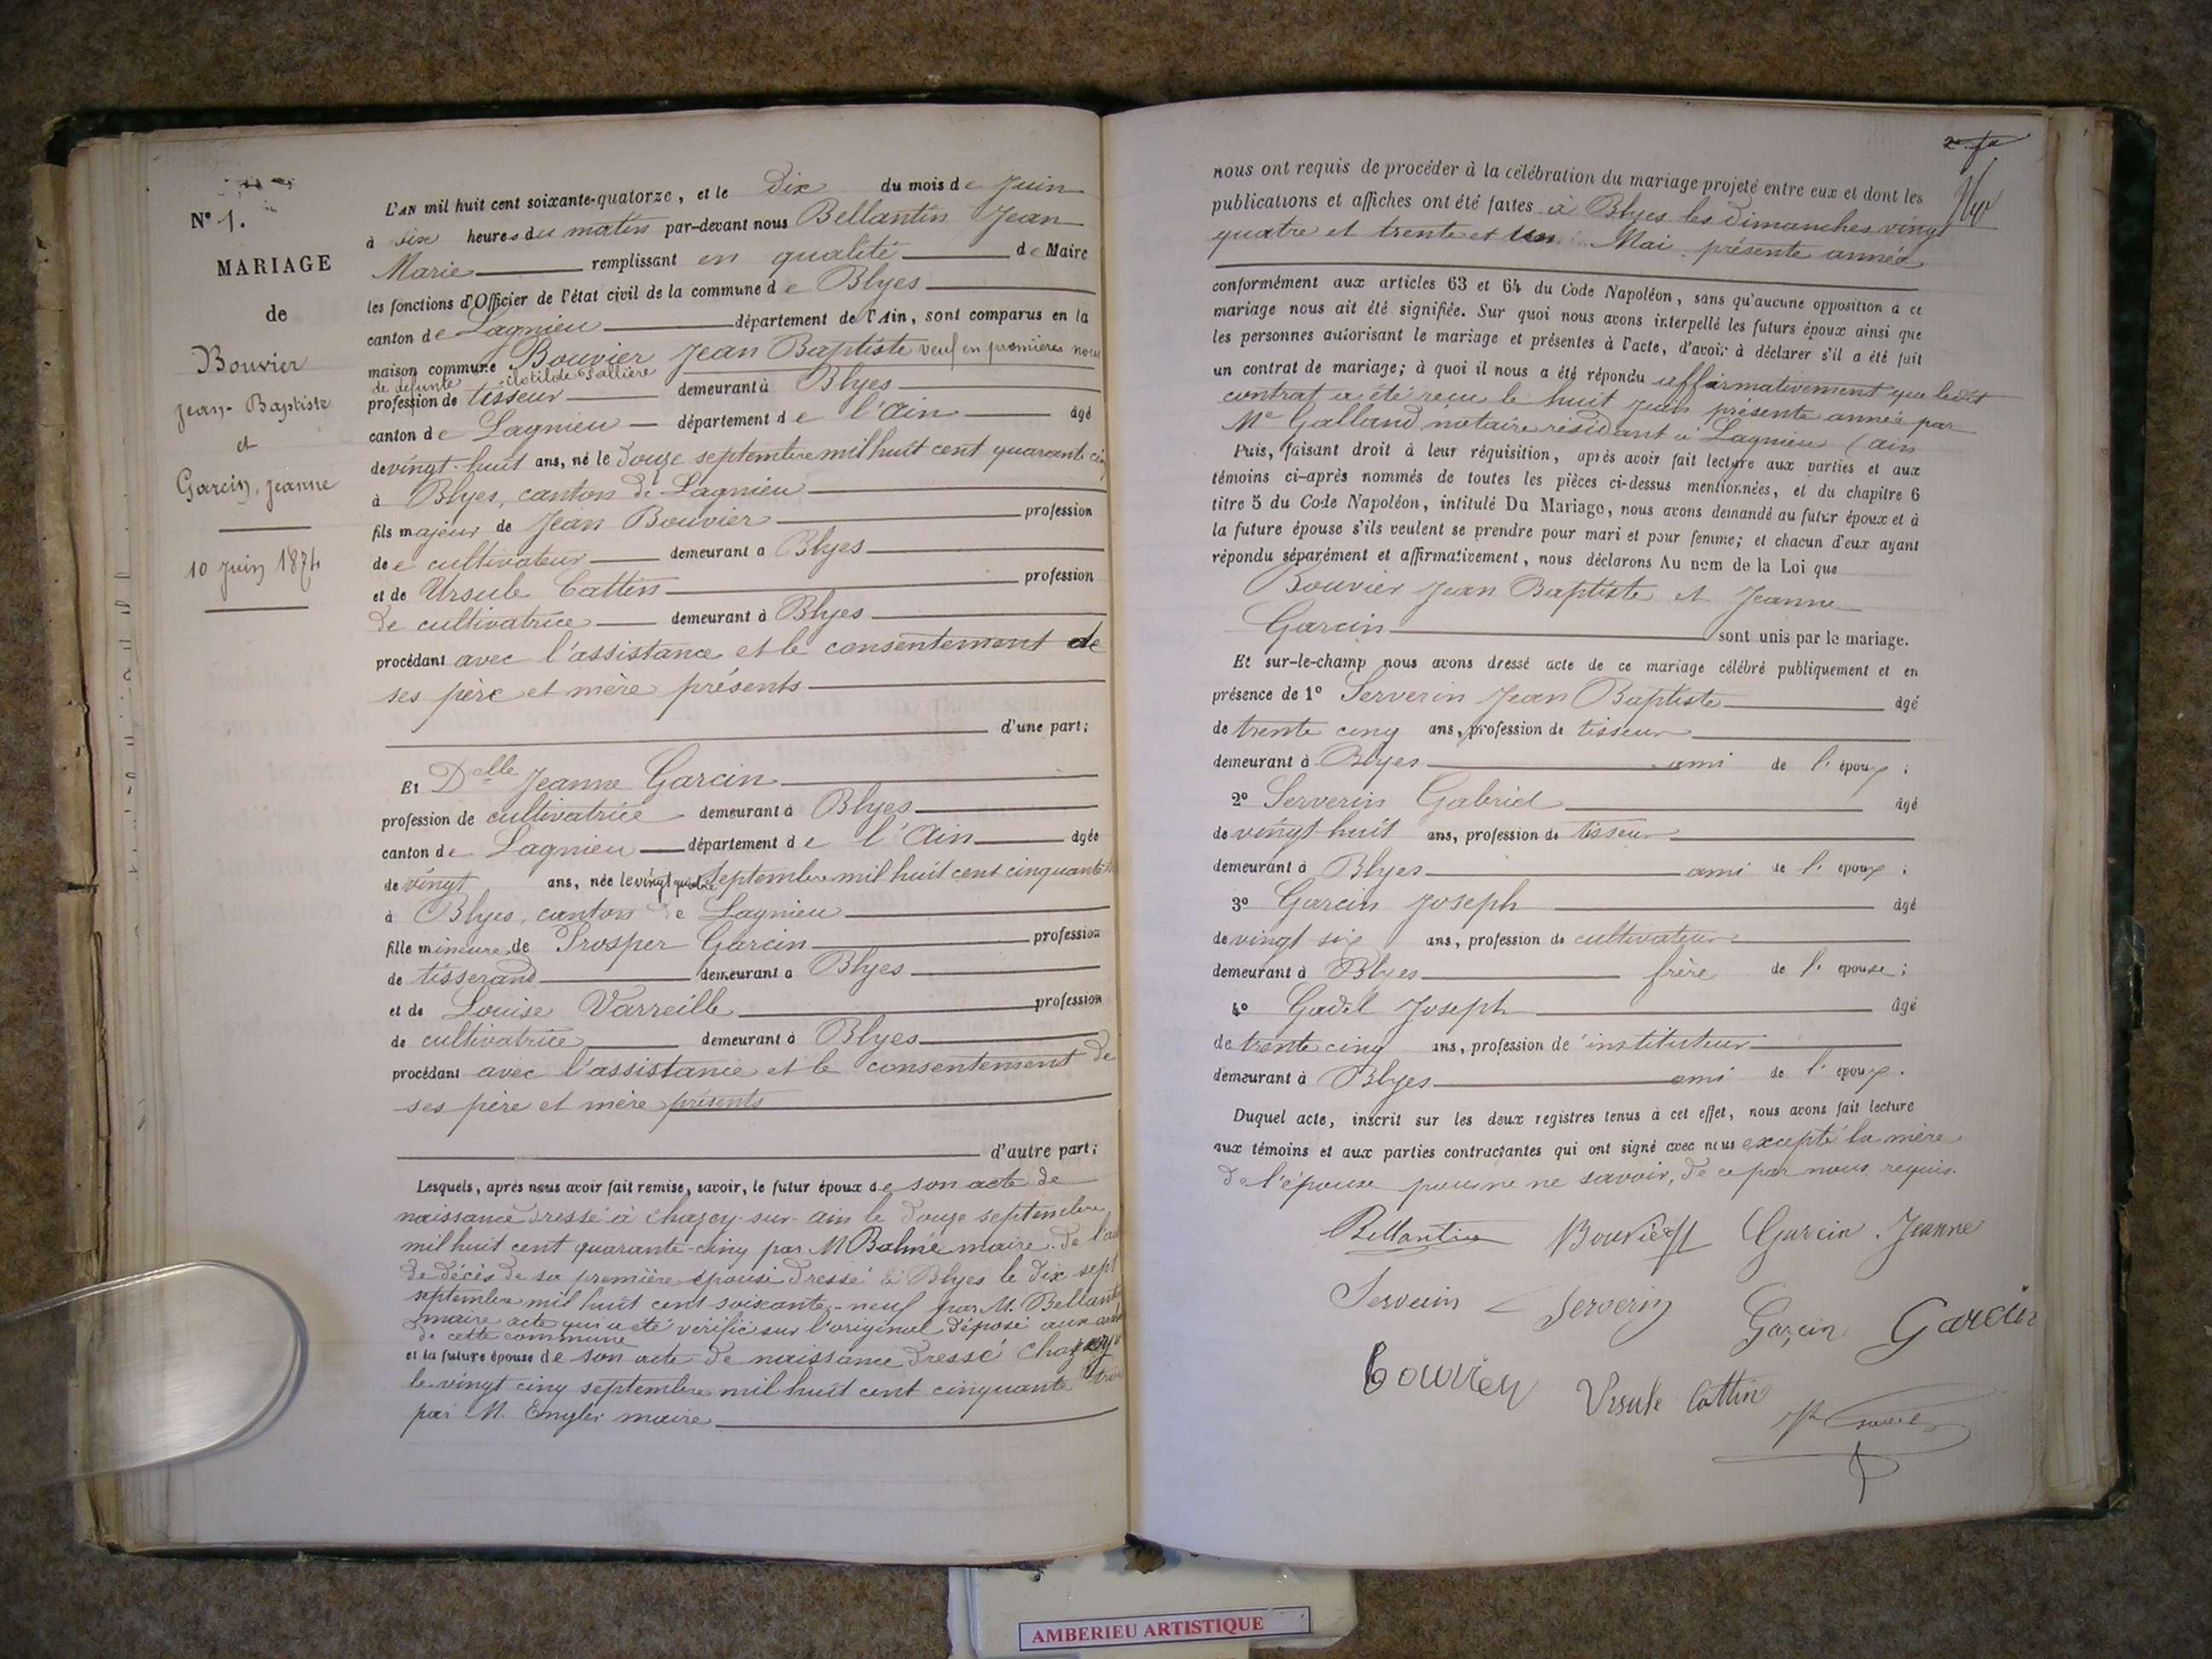 N° 1.
MARIAGE
de
Bouvier
Jean-Baptiste
et
Garcin, Jeanne
10 Juin 1874
L'AN mil huit cent soixante-quatorze, et le Dix du mois de Juin
à six heures du matin par-devant nous Bellantin Jean
Marie remplissant en qualité de Maire
les fonctions d'Officier de l'état civil de la commune de Blyes
canton de Lagnieu département de l'Ain, sont comparus en la
maison commune Bouvier Jean Baptiste veuf en premières noces
de défunte Clotilde Pallière
profession de tisseur demeurant à Blyes
canton de Lagnieu département de l'Ain âgé
de vingt-huit ans, né le Douze septembre mil huit cent quarante cinq
à Blyes, canton de Lagnieu
fils majeur de Jean Bouvier profession
de cultivateur demeurant à Blyes
et de Ursule Cattin profession
de cultivatrice demeurant à Blyes
procédant avec l'assistance et le consentement de
ses père et mère présents
d'une part;
Et Delle Jeanne Garcin
profession de cultivatrice demeurant à Blyes
canton de Lagnieu département de l'Ain âgée
de vingt ans, née le vingt quatre septembre mil huit cent cinquante
à Blyes, canton de Lagnieu
fille mineure de Prosper Garcin profession
de tisserand demeurant à Blyes
et de Louise Varreille profession
de cultivatrice demeurant à Blyes
procédant avec l'assistance et le consentement de
ses père et mère présents
d'autre part;
Lesquels, après nous avoir fait remise, savoir, le futur époux de son acte de
naissance dressé à Chazey-sur-ain le Douze septembre
mil huit cent quarante-cinq par M Balme maire. De l'acte
de décès de sa première épouse dressé à Blyes le dix sept
septembre mil huit cent soixante-neuf par M. Bellantin
maire acte qui a été vérifié sur l'original déposé aux
de cette commune
et la future épouse de son acte de naissance dressé Chazey
le vingt cinq septembre mil huit cent cinquante trois
par M. maire
nous ont requis de procéder à la célébration du mariage projeté entre eux et dont les
publications et affiches ont été faites à Blyes les Dimanches vingt
quatre et trente et un Mai présente année
conformément aux articles 63 et 64 du Code Napoléon, sans qu'aucune opposition à ce
mariage nous ait été signifiée. Sur quoi nous avons interpellé les futurs époux ainsi que
les personnes autorisant le mariage et présentes à l'acte, d'avoir à déclarer s'il a été fait
un contrat de mariage; à quoi il nous a été répondu affirmativement que ledit
contrat a été reçu le huit juin présente année par
Me Galland notaire résidant à Lagnieu (ain
Puis, faisant droit à leur réquisition, après avoir fait lecture aux parties et aux
témoins ci-après nommés de toutes les pièces ci-dessus mentionnées, et du chapitre 6
titre 5 du Code Napoléon, intitulé Du Mariage, nous avons demandé au futur époux et à
la future épouse s'ils veulent se prendre pour mari et pour femme; et chacun d'eux ayant
répondu séparément et affirmativement, nous déclarons Au nom de la Loi que
Bouvier Jean Baptiste et Jeanne
Garcin sont unis par le mariage.
Et sur-le-champ nous avons dressé acte de ce mariage célébré publiquement et en
présence de 1° Serverin Jean Baptiste âgé
de trente cinq ans, profession de tisseur
demeurant à Blyes ami de l'époux;
2° Serverin Gabriel âgé
de vingt-huit ans, profession de tisseur
demeurant à Blyes ami de l'époux;
3° Garcin Joseph âgé
de vingt six ans, profession de cultivateur
demeurant à Blyes frère de l'épouse;
4° Gadel Joseph âgé
de trente cinq ans, profession de instituteur
demeurant à Blyes ami de l'époux.
Duquel acte, inscrit sur les deux registres tenus à cet effet, nous avons fait lecture
aux témoins et aux parties contractantes qui ont signé avec nous excepté la mère
de l'épouse pour ne savoir, de ce par nous requis.
Bellantin Bouvier Garcin Jeanne
Serverin Serverin Garcin Garcin
Bouvier Ursule Cattin
AMBERIEU ARTISTIQUE